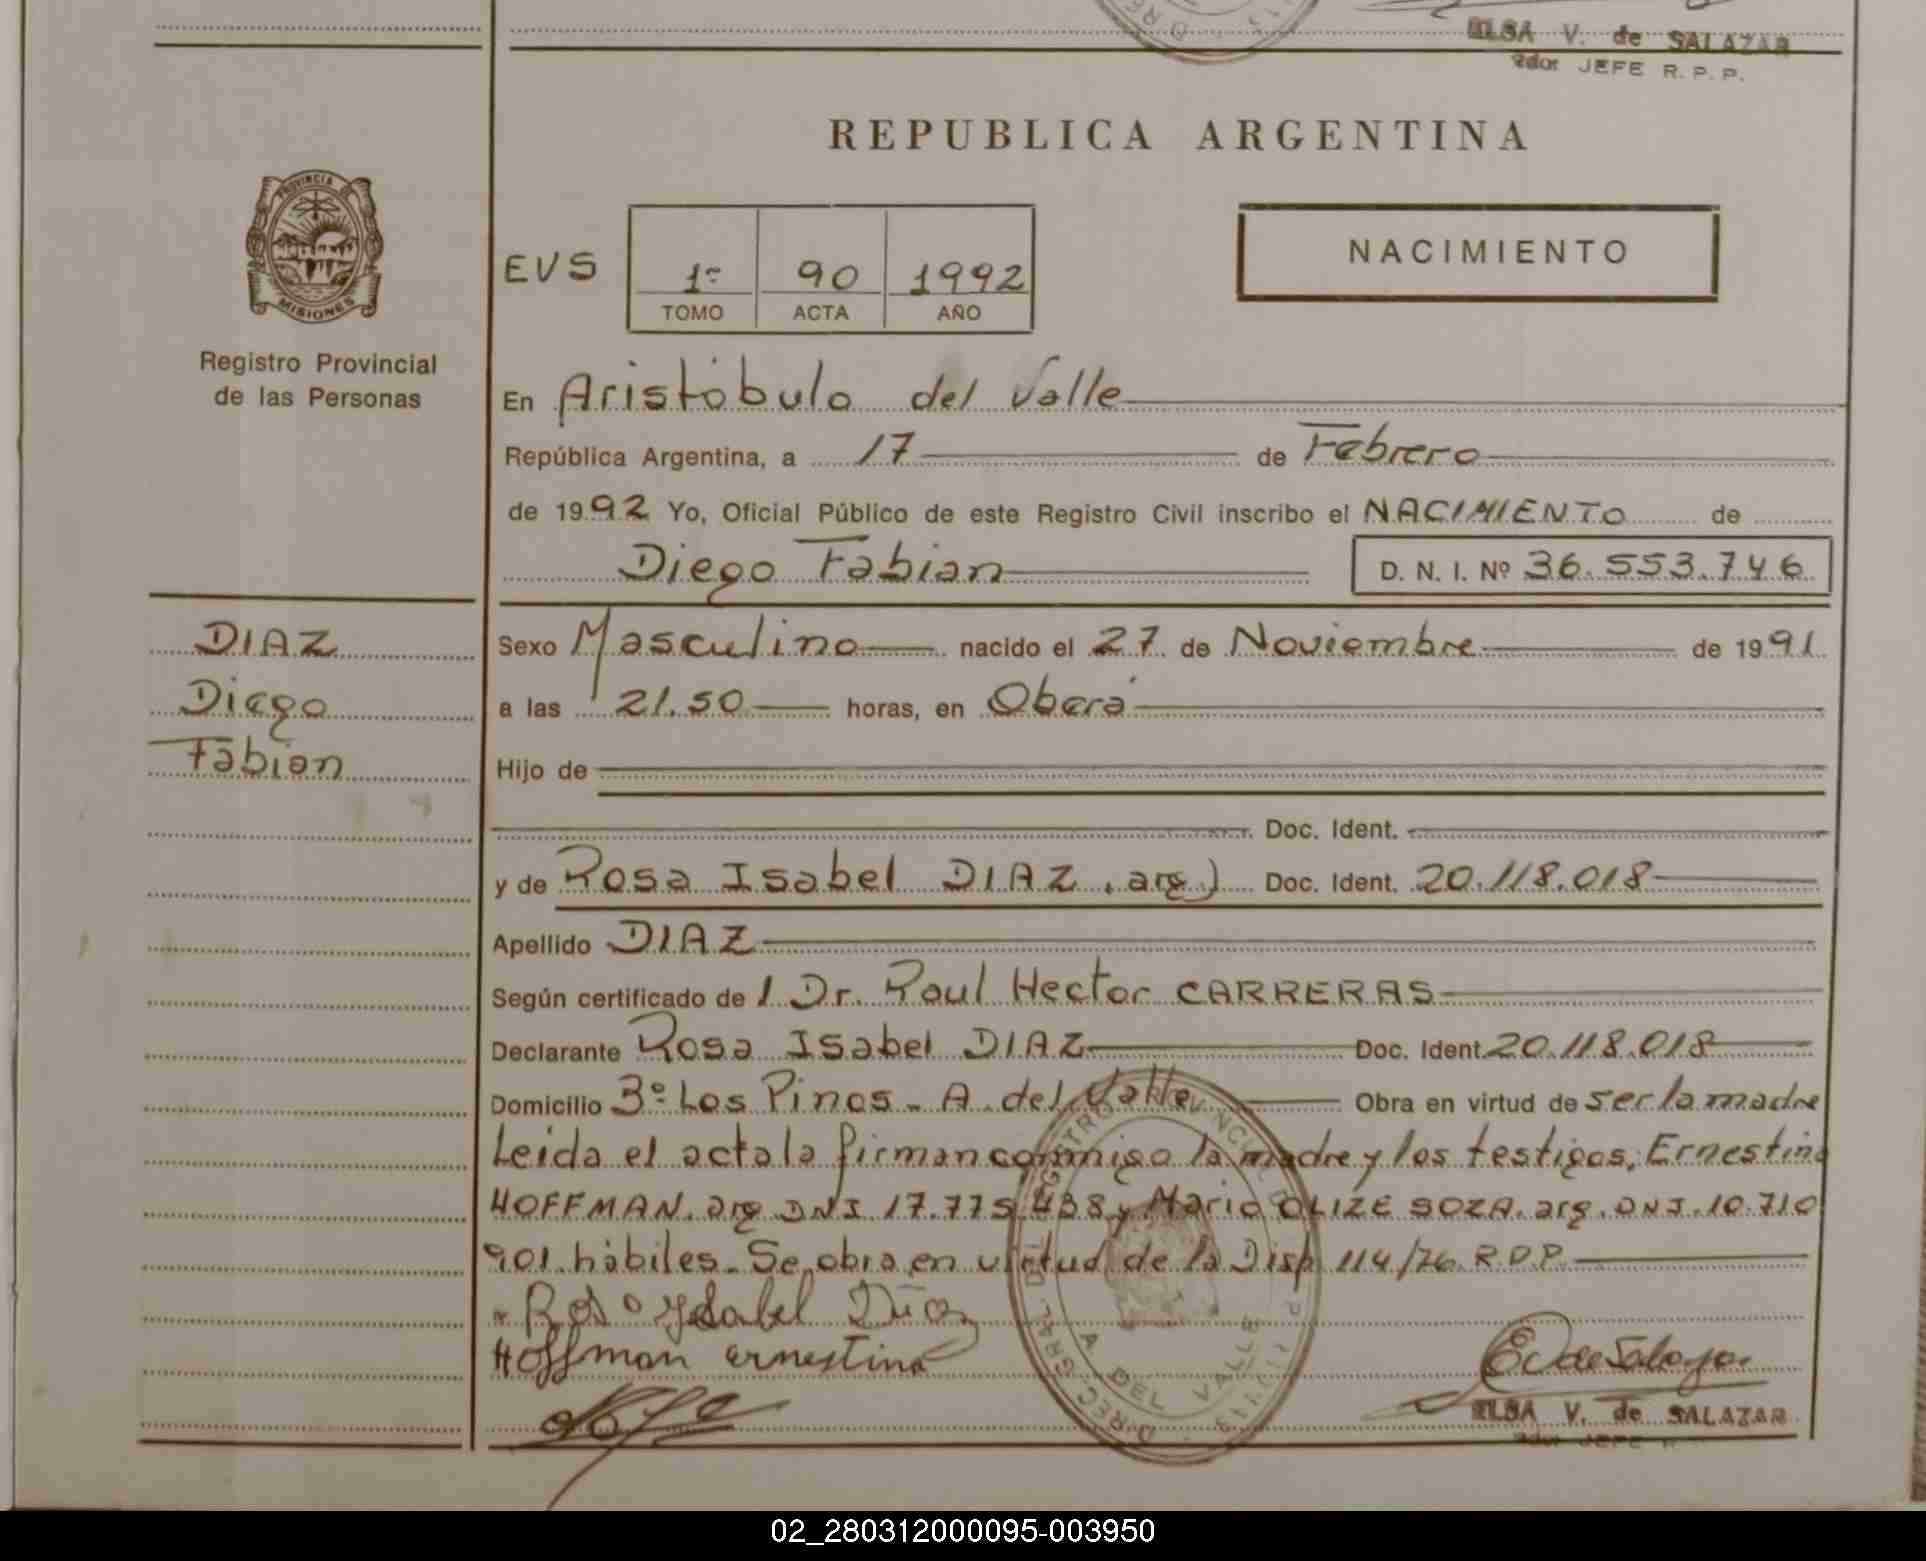 ELSA V. de SALAZAR
JEFE R. P. P.
REPUBLICA ARGENTINA
PROVINCIA DE
MISIONES
Registro Provincial
de las Personas
EVS
1º 90 1992
TOMO ACTA AÑO
NACIMIENTO
En Aristóbulo del Valle
República Argentina, a 17 de Febrero
de 1992 Yo, Oficial Público de este Registro Civil inscribo el NACIMIENTO de
Diego Fabian D. N. I. Nº 36.553.746
DIAZ
Diego
Fabian
Sexo Masculino nacido el 27 de Noviembre de 1991
a las 21.50 horas, en Oberá
Hijo de
Doc. Ident.
y de Rosa Isabel DIAZ, arg.) Doc. Ident. 20.118.018
Apellido DIAZ
Según certificado de l Dr. Raul Hector CARRERAS
Declarante Rosa Isabel DIAZ Doc. Ident. 20.118.018
Domicilio 3º Los Pinos - A. del Valle Obra en virtud de ser la madre
Leida el acta la firman conmigo la madre y los testigos, Ernestina
HOFFMAN. arg DNI 17.775.438 y Mario OLIZE SOZA. arg. DNI. 10.710
901. hábiles. Se obra en virtud de la Disp 114/76. R.D.P.
Rosa Ysabel Díaz
Hoffman ernestina
A DEL VALLE
ELSA V. de SALAZAR
JEFE
02_280312000095-003950